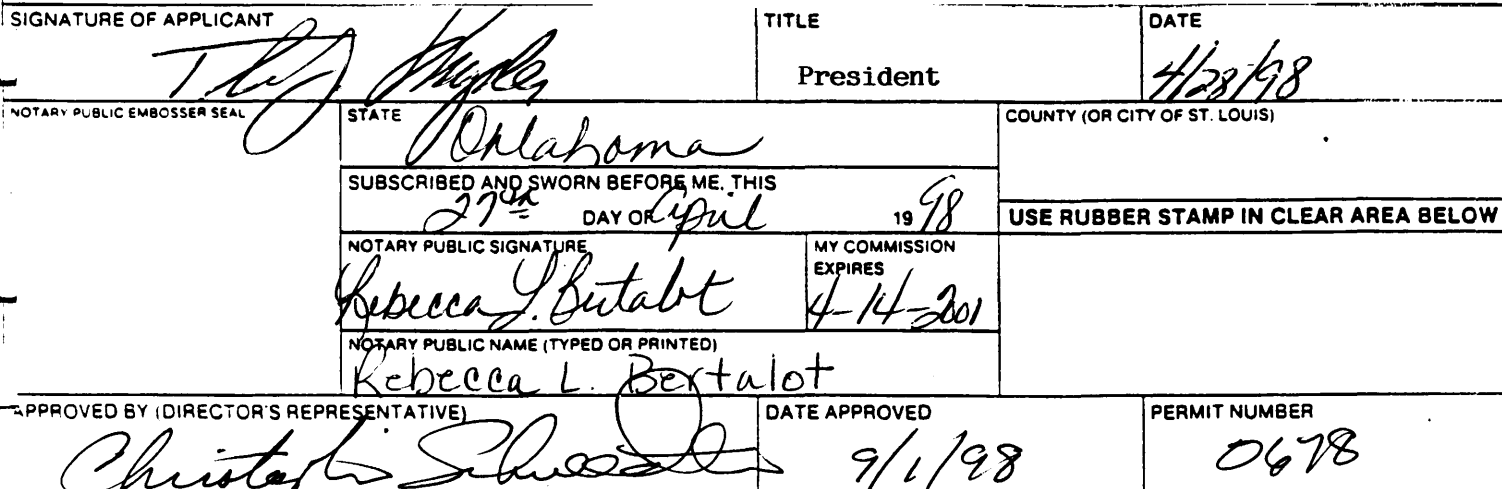 SIGNATURE OF APPLICANT TITLE DATE
President 4/28/98
NOTARY PUBLIC EMBOSSER SEAL STATE COUNTY (OR CITY OF ST. LOUIS)
Oklahoma
SUBSCRIBED AND SWORN BEFORE ME, THIS
27th DAY OF April 19 98 USE RUBBER STAMP IN CLEAR AREA BELOW
NOTARY PUBLIC SIGNATURE MY COMMISSION
EXPIRES
Rebecca L. Bertalot 4-14-2001
NOTARY PUBLIC NAME (TYPED OR PRINTED)
Rebecca L. Bertalot
APPROVED BY (DIRECTOR'S REPRESENTATIVE) DATE APPROVED PERMIT NUMBER
9/1/98 0678